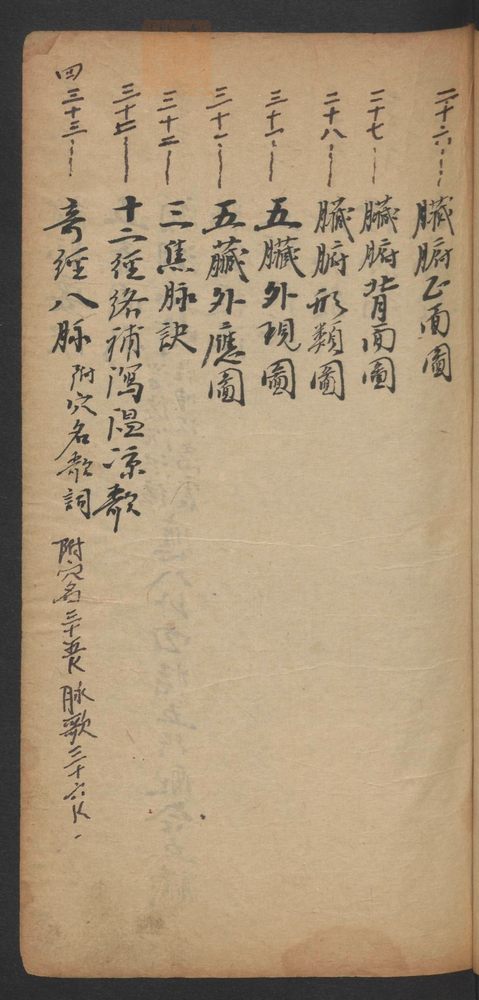 二十六 臟腑正面圖
二十七 臟腑背面圖
二十八 臟腑形類圖
三十一 五臟外現圖
三十一 五臟外應圖
三十二 三焦脉訣
三十七 十二經絡補瀉温凉歌
四 三十三 奇經八脉 附穴名歌詞 附穴名三十 脉歌三十六